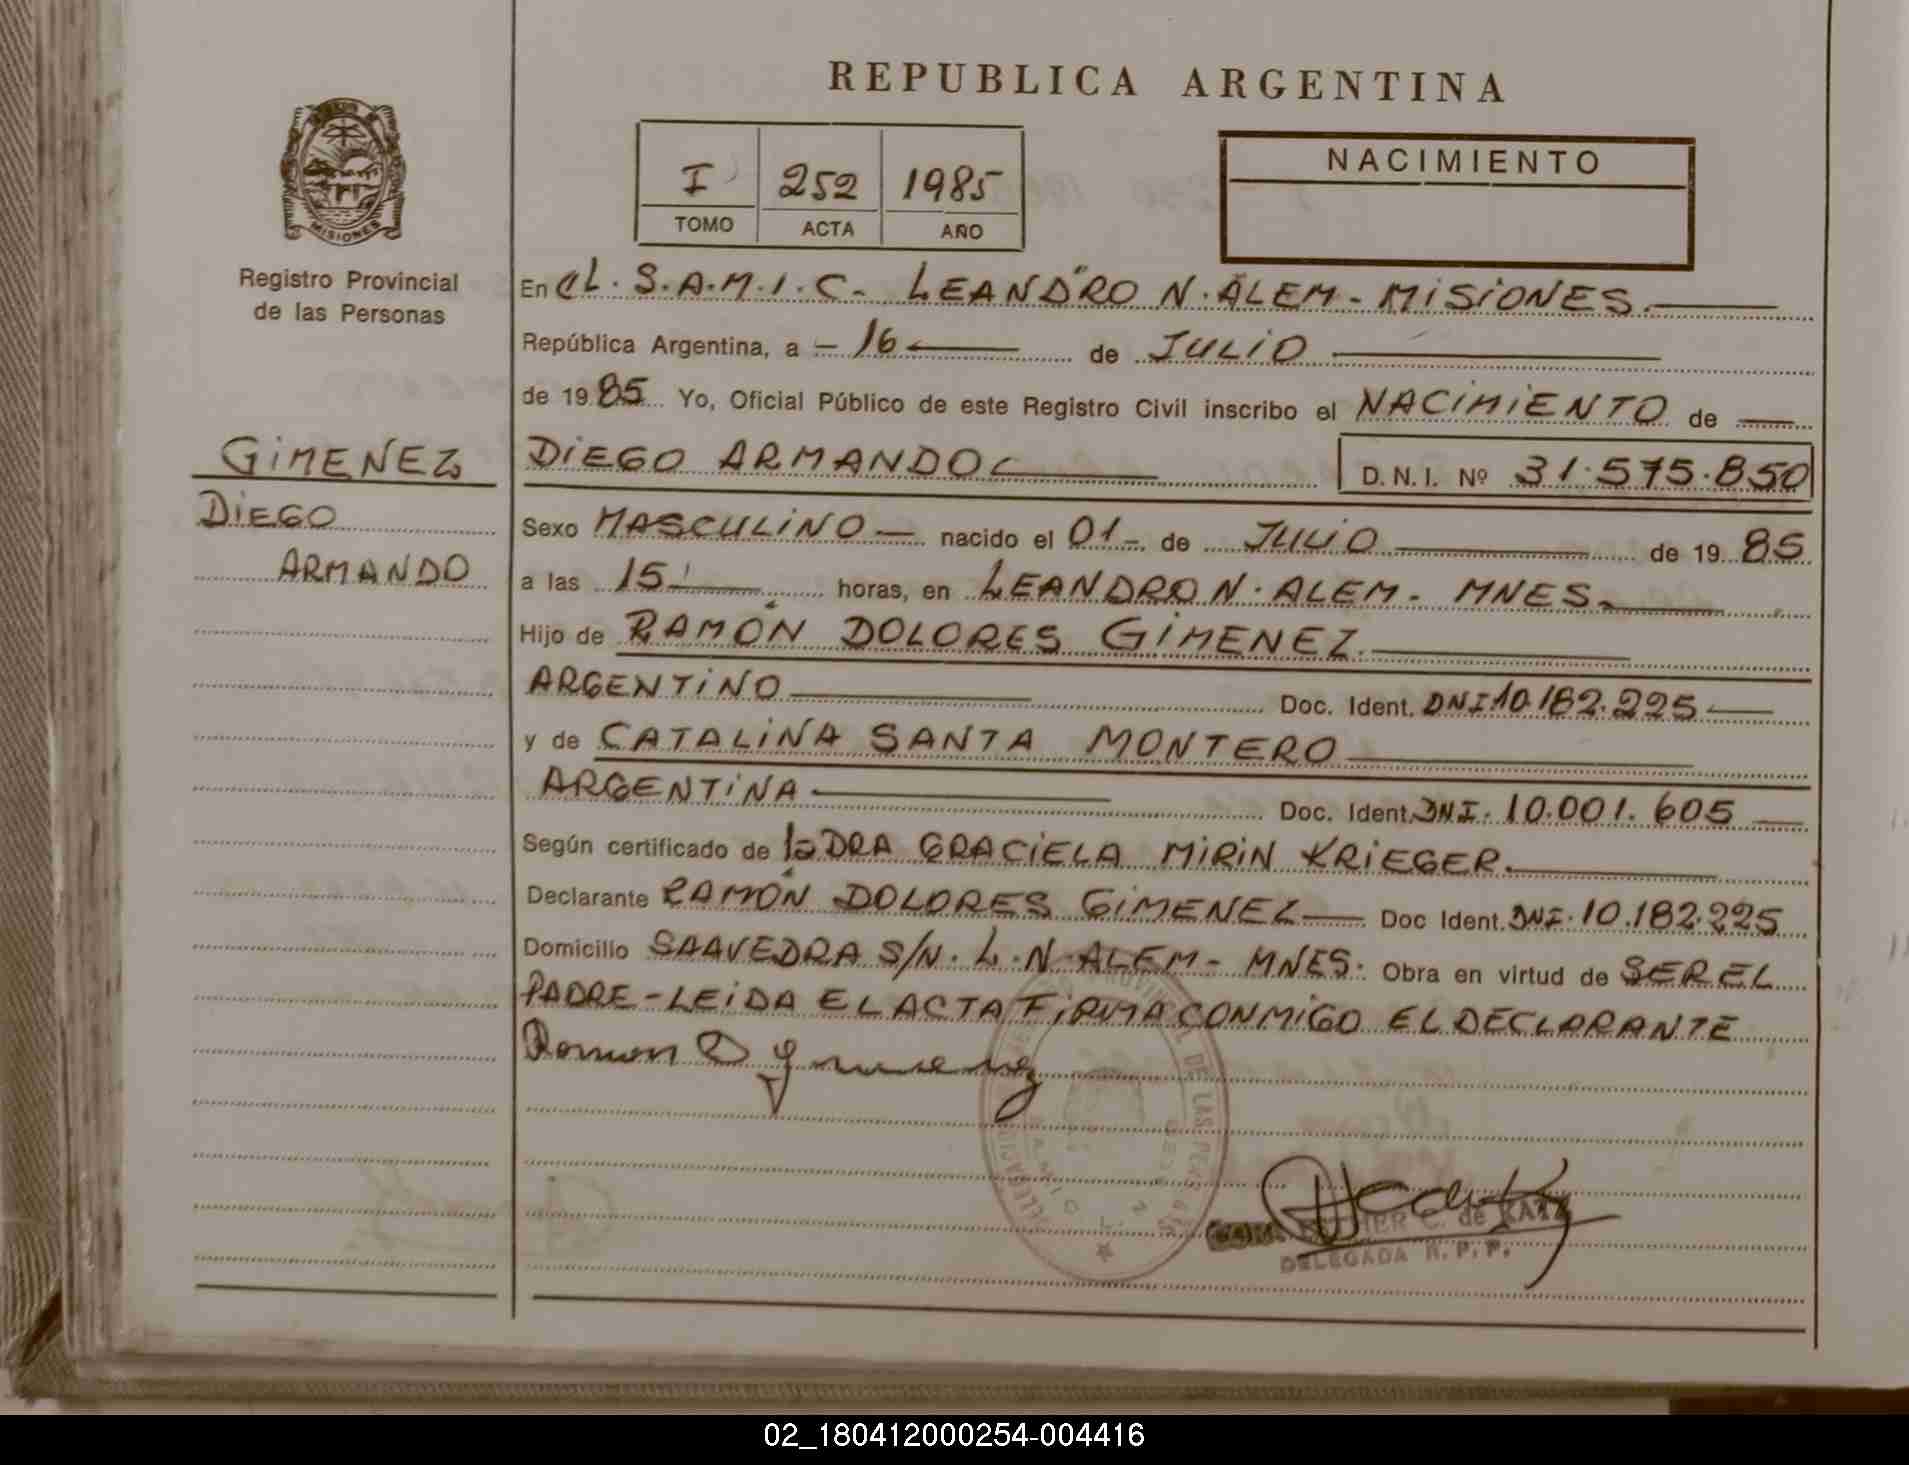 REPUBLICA ARGENTINA
MISIONES
Registro Provincial
de las Personas
I 252 1985
TOMO ACTA AÑO
NACIMIENTO
GIMENEZ
DIEGO
ARMANDO
En el S.A.M.I.C. LEANDRO N. ALEM - MISIONES.
República Argentina, a - 16 de JULIO
de 1985 Yo, Oficial Público de este Registro Civil inscribo el NACIMIENTO de
DIEGO ARMANDO D.N.I. Nº 31.575.850
Sexo MASCULINO nacido el 01 de JULIO de 1985
a las 15 horas, en LEANDRO N. ALEM - MNES.
Hijo de RAMÓN DOLORES GIMENEZ.
ARGENTINO Doc. Ident. DNI 10.182.225
y de CATALINA SANTA MONTERO
ARGENTINA Doc. Ident. DNI. 10.001.605
Según certificado de la DRA GRACIELA MIRIN KRIEGER.
Declarante RAMÓN DOLORES GIMENEZ Doc Ident. DNI. 10.182.225
Domicilio SAAVEDRA S/N. L.N. ALEM - MNES. Obra en virtud de SER EL
PADRE - LEIDA EL ACTA FIRMA CONMIGO EL DECLARANTE
Ramon D Gimenez
C. de KATZ
DELEGADA R.P.P.
02_180412000254-004416